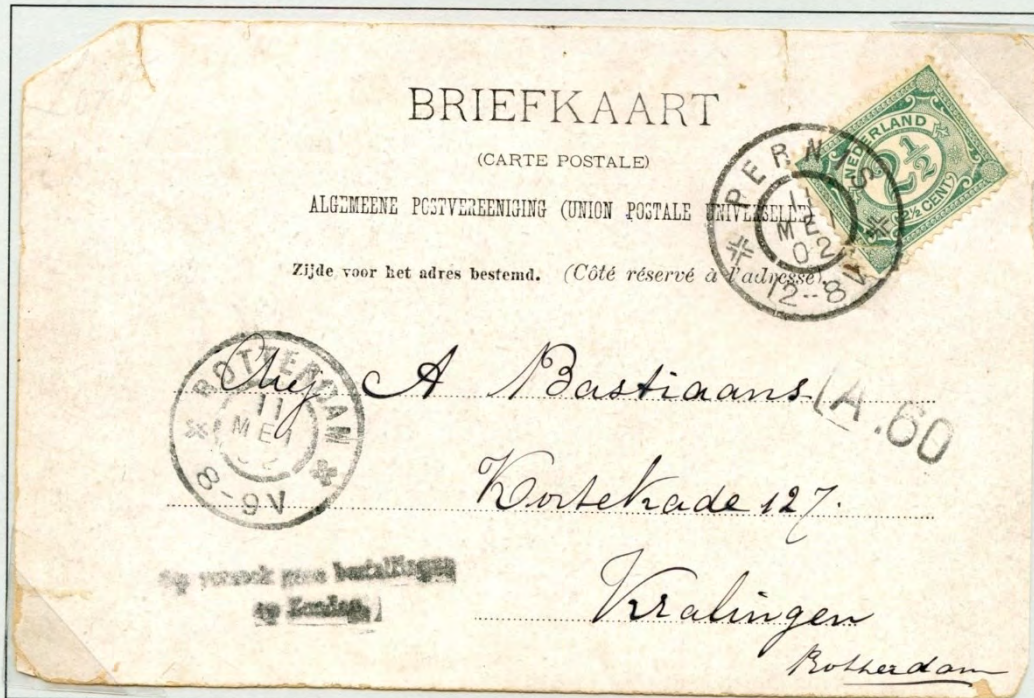 BRIEFKAART
(CARTE POSTALE)
ALGEMEENE POSTVEREENIGING (UNION POSTALE UNIVERSELLE)
Zijde voor het adres bestemd. (Côté réservé à l'adresse).
NEDERLAND
2½
(2½ CENT)
PERNIS
11
MEI
02
12-8V
ROTTERDAM
11
MEI
02
8-9V
A Bastiaans
A.60
Kortekade 127.
Kralingen
Rotterdam
Op verzoek geen bestellingen
op Zondag.